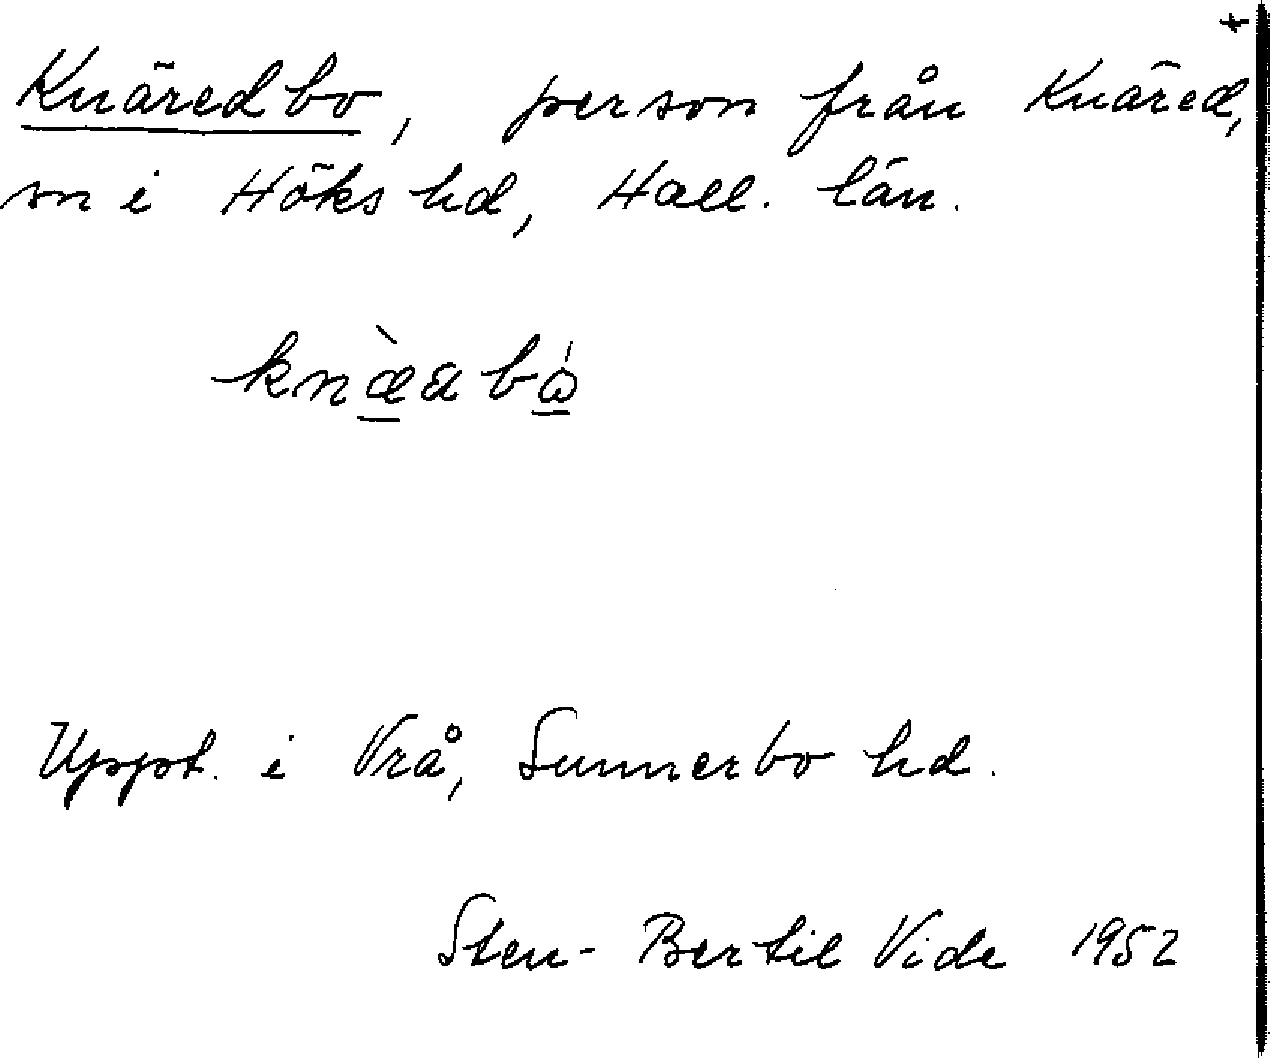 Knäredbo, person från Knäred,
sn i Höks hd, Hall. län.
knæ̀abó
Uppt. i Vrå, Sunnerbo hd.
Sten-Bertil Vide 1952